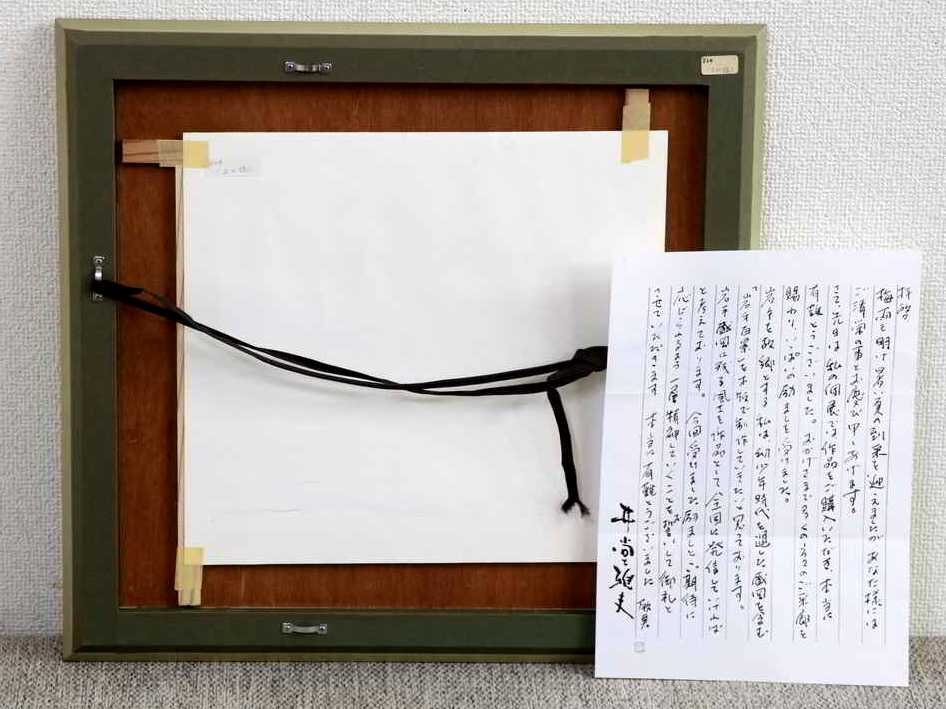 拝啓
梅雨も明け暑い夏の到来を迎えましたが あなた様には
ご清栄の事とお慶び申しあげます。
さて、先日は私の個展では作品をご購入いただき、本当に
有難とうございました。おかげさまで多くの方々のご来廊を
賜わり、いっぱいの励ましを受けました。
岩手を故郷とする私は幼少年時代を過した盛岡を含む
「岩手百景」を木版で制作していきたいと思っております。
岩手盛岡に残る風土を作品として全国に発信していければ
と考えております。 今回受けました励ましとご期待に
応じられるよう一層精郷していくことをお誓いして御礼と
させていただきます 本当に有難とうございました 敬具
井堂雅夫